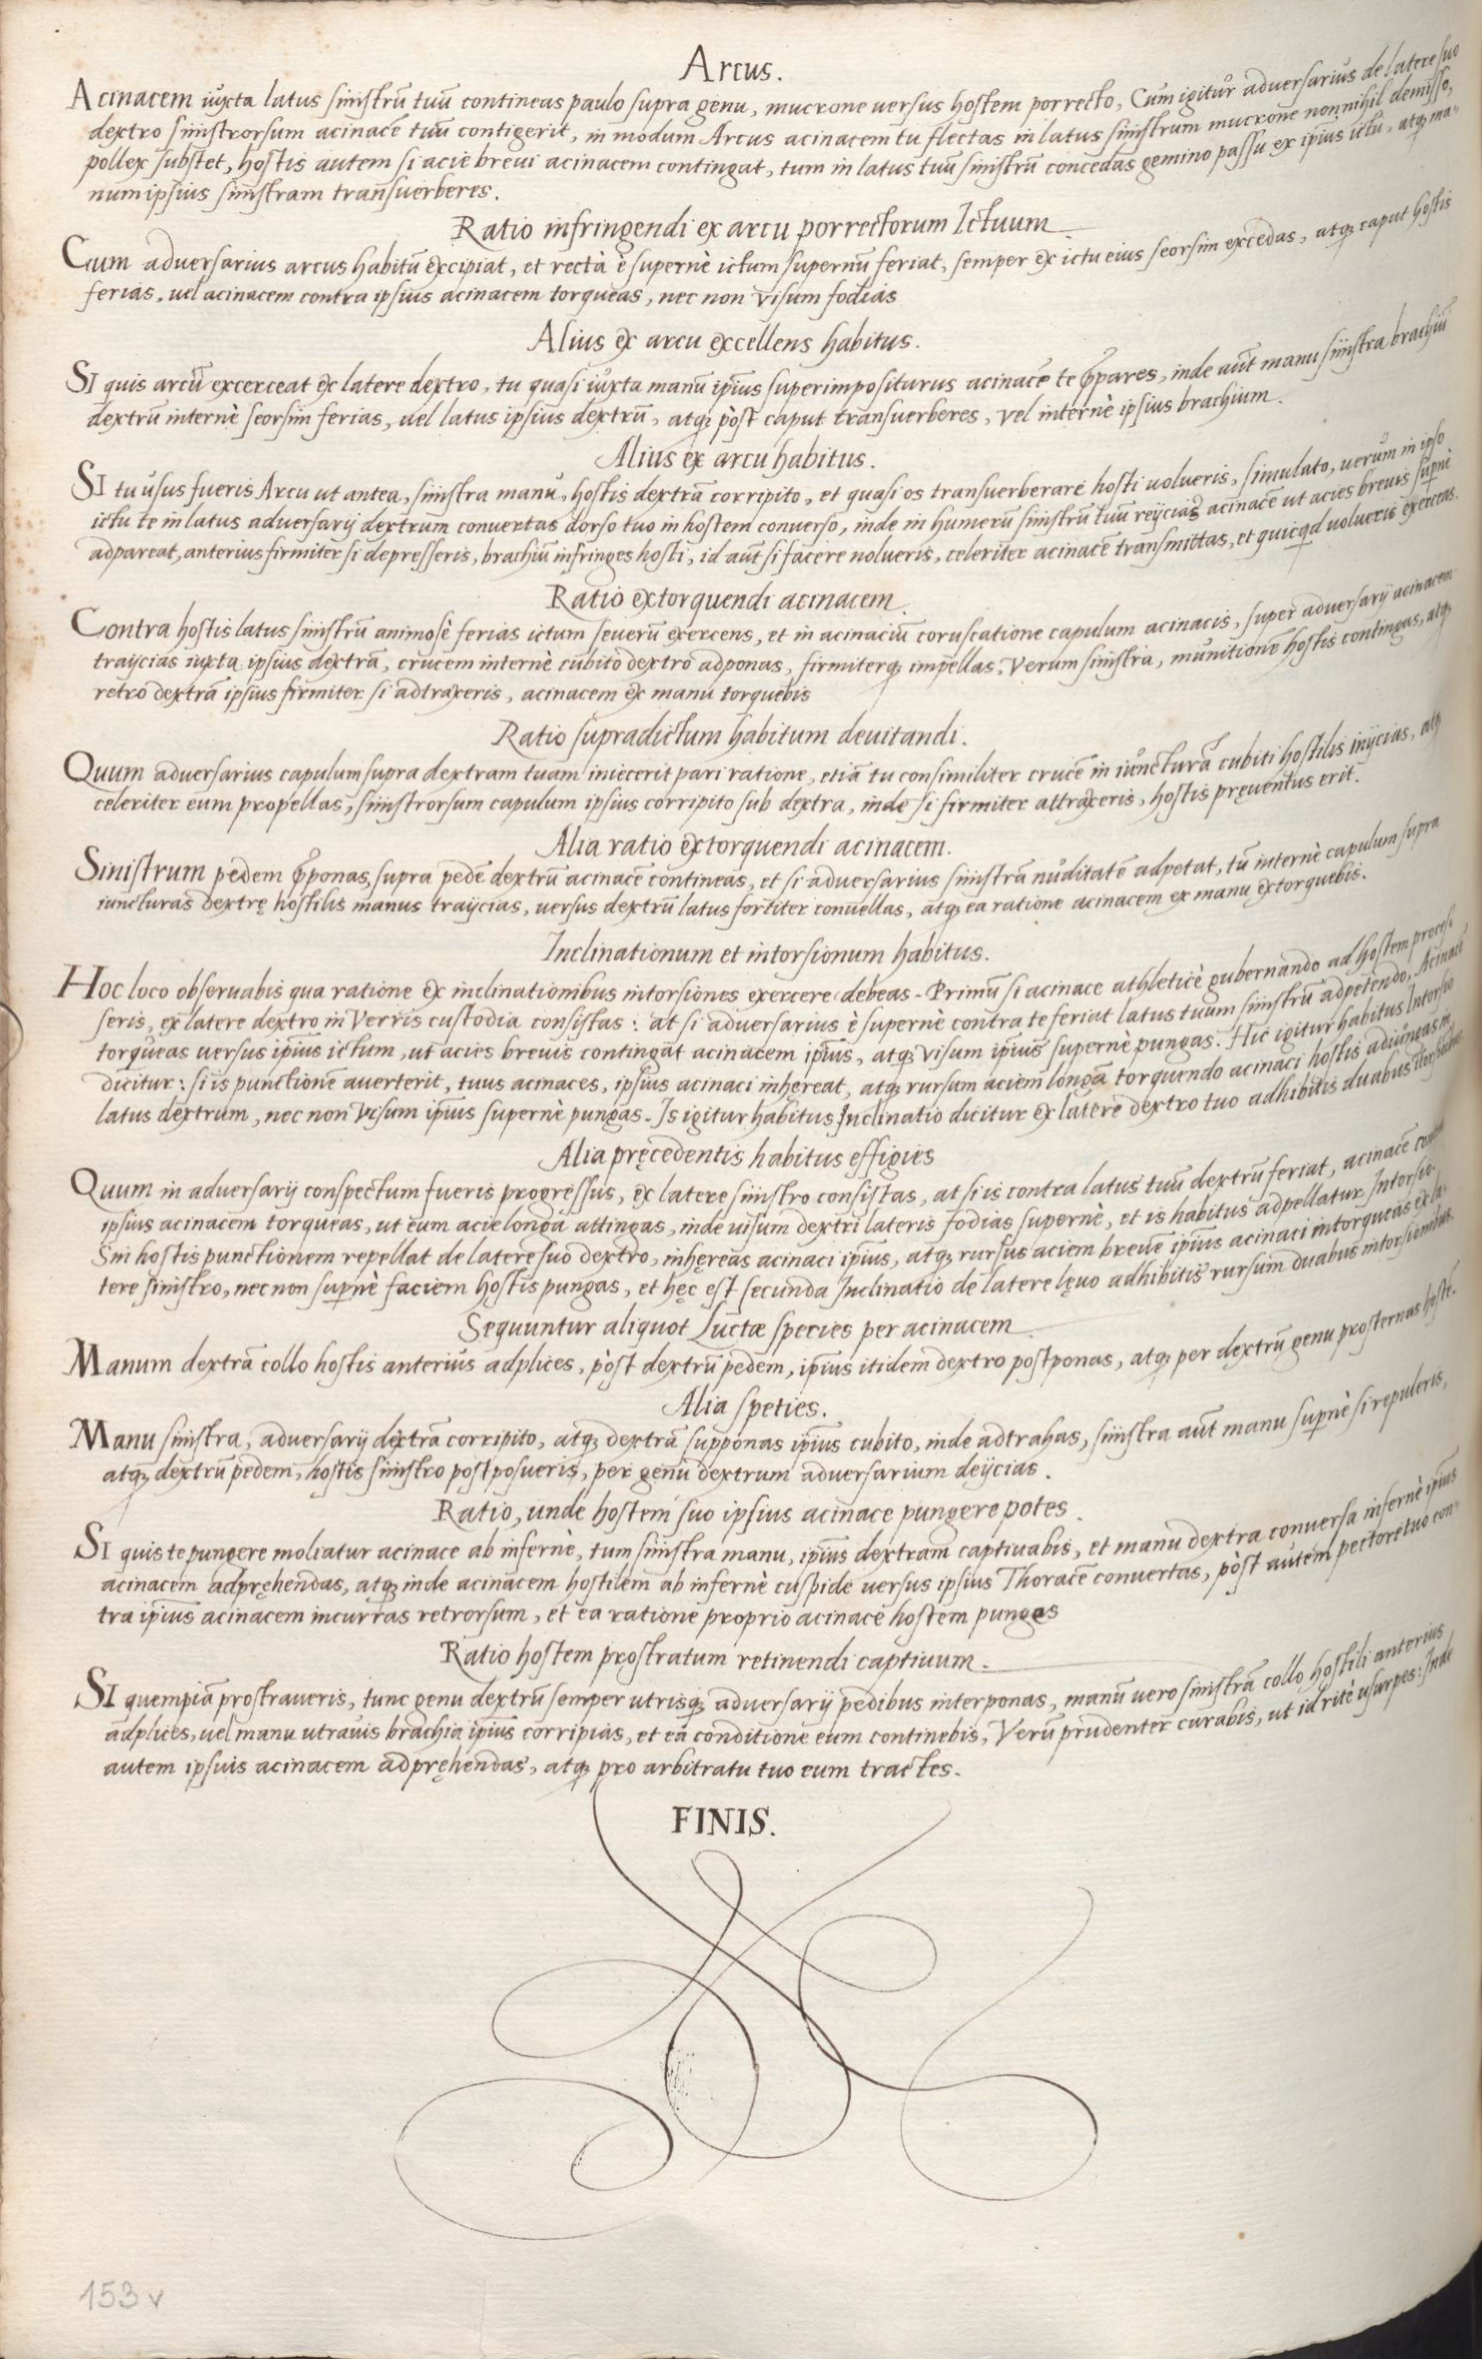 Arcus.
Acinacem iuxta latus sinistrū tuū contineas paulo supra genu, mucrone uersus hostem porrecto, Cum igitur aduersarius de latere suo
dextro sinistrorsum acinacē tuū contigerit, in modum Arcus acinacem tu flectas in latus sinistrum mucrone nonnihil demisso,
pollex substet, hostis autem si acie breui acinacem contingat, tum in latus tuū sinistrū concedas gemino passu ex ipius ictu, atq; ma-
num ipsius sinistram transuerberes.
Ratio infringendi ex arcu porrectorum Ictuum
Cum aduersarius arcus habitū excipiat, et rectà è supernè ictum supernū feriat, semper ex ictu eius seorsim excedas, atq; caput hostis
ferias, uel acinacem contra ipsius acinacem torqueas, nec non visum fodias
Alius ex arcu excellens habitus.
Si quis arcū excerceat ex latere dextro, tu quasi iuxta manū ipīus superimpositurus acinacē te p̄pares, inde aūt manu sinistra brachiū
dextrū internè seorsim ferias, uel latus ipsius dextrū, atq; pòst caput transuerberes, vel internè ipsius brachium.
Alius ex arcu habitus.
Si tu usus fueris Arcu ut antea, sinistra manu, hostis dextrā corripito, et quasi os transuerberare hosti uolueris, simulato, uerum in ipso
ictu te in latus aduersarij dextrum conuertas dorso tuo in hostem conuerso, inde in humerū sinistrū tuū reijcias acinacē ut acies breuis supnè
adpareat, anterius firmiter si depresseris, brachiū infringes hosti, id aūt si facere nolueris, celeriter acinacē transmittas, et quicqd uolueris exerceas.
Ratio extorquendi acinacem.
Contra hostis latus sinistrū animosè ferias ictum seuerū exercens, et in acinaciū coruscatione capulum acinacis, super aduersarij acinacem
traijcias iuxta ipsius dextrā, crucem internè cubito dextro adponas, firmiterq; impellas. Verum sinistra, munitionē hostis contingas, atq;
retro dextrā ipsius firmiter si adtraxeris, acinacem ex manu torquebis
Ratio supradictum habitum deuitandi.
Quum aduersarius capulum supra dextram tuam iniecerit pari ratione, etiā tu consimiliter crucē in iuncturā cubiti hostilis inijcias, atq;
celeriter eum propellas, sinistrorsum capulum ipsius corripito sub dextra, inde si firmiter attraxeris, hostis pręuentus erit.
Alia ratio extorquendi acinacem.
Sinistrum pedem p̄ponas, supra pedē dextrū acinacē contineas, et si aduersarius sinistrā nuditatē adpetat, tū internè capulum supra
iuncturas dextrę hostilis manus traijcias, uersus dextrū latus fortiter conuellas, atq; ea ratione acinacem ex manu extorquebis.
Inclinationum et intorsionum habitus.
Hoc loco obseruabis qua ratione ex inclinationibus intorsiones exercere debeas. Primū si acinace athleticè gubernando ad hostem proces-
seris, ex latere dextro in Verris custodia consistas: at si aduersarius è supernè contra te feriat latus tuum sinistrū adpetendo, Acinacē
torqueas uersus ipīus ictum, ut acies breuis contingat acinacem ipīus, atq; visum ipīus supernè pungas. Hic igitur habitus Intorsio
dicitur: si is punctionē auerterit, tuus acinaces, ipsius acinaci inhereat, atq; rursum aciem longā torquendo acinaci hostis adiungas in
latus dextrum, nec non visum ipīus supernè pungas. Is igitur habitus Inclinatio dicitur ex latere dextro tuo adhibitis duabus
Alia pręcedentis habitus effigies
Quum in aduersarij conspectum fueris progressus, ex latere sinistro consistas, at si is contra latus tuū dextrū feriat, acinacē contra
ipsius acinacem torqueas, ut eum acie longa attingas, inde uisum dextri lateris fodias supernè, et is habitus adpellatur Intorsio.
Sin hostis punctionem repellat de latere suo dextro, inhęreas acinaci ipīus, atq; rursus aciem breuē ipīus acinaci intorqueas ex la-
tere sinistro, nec non supnè faciem hostis pungas, et hęc est secunda Inclinatio de latere lęuo adhibitis rursum duabus intorsionibus.
Sequuntur aliquot Luctæ species per acinacem
Manum dextrā collo hostis anterius adplices, pòst dextrū pedem, ipīus itidem dextro postponas, atq; per dextrū genu prosternas hostē.
Alia species.
Manu sinistra, aduersarij dextrā corripito, atq; dextrā supponas ipīus cubito, inde adtrahas, sinistra aūt manu supnè si repuleris,
atq; dextrū pedem, hostis sinistro postposueris, per genu dextrum aduersarium deijcias.
Ratio, unde hostem suo ipsius acinace pungere potes.
Si quis te pungere moliatur acinace ab infernè, tum sinistra manu, ipīus dextram captiuabis, et manu dextra conuersa infernè ipīus
acinacem adpręhendas, atq; inde acinacem hostilem ab infernè cuspide uersus ipsius Thoracē conuertas, pòst autem pectore tuo con-
tra ipīus acinacem incurras retrorsum, et ea ratione proprio acinace hostem pungas
Ratio hostem prostratum retinendi captiuum.
Si quempiā prostraueris, tunc genu dextrū semper utrisq; aduersarij pedibus interponas, manū uero sinistrā collo hostili anterius
adplices, uel manu utrauis brachia ipīus corripias, et ea conditione eum continebis, Verū prudenter curabis, ut id ritè usurpes: Inde
autem ipsuis acinacem adpręhendas, atq; pro arbitratu tuo eum tractes.
FINIS.
153 v